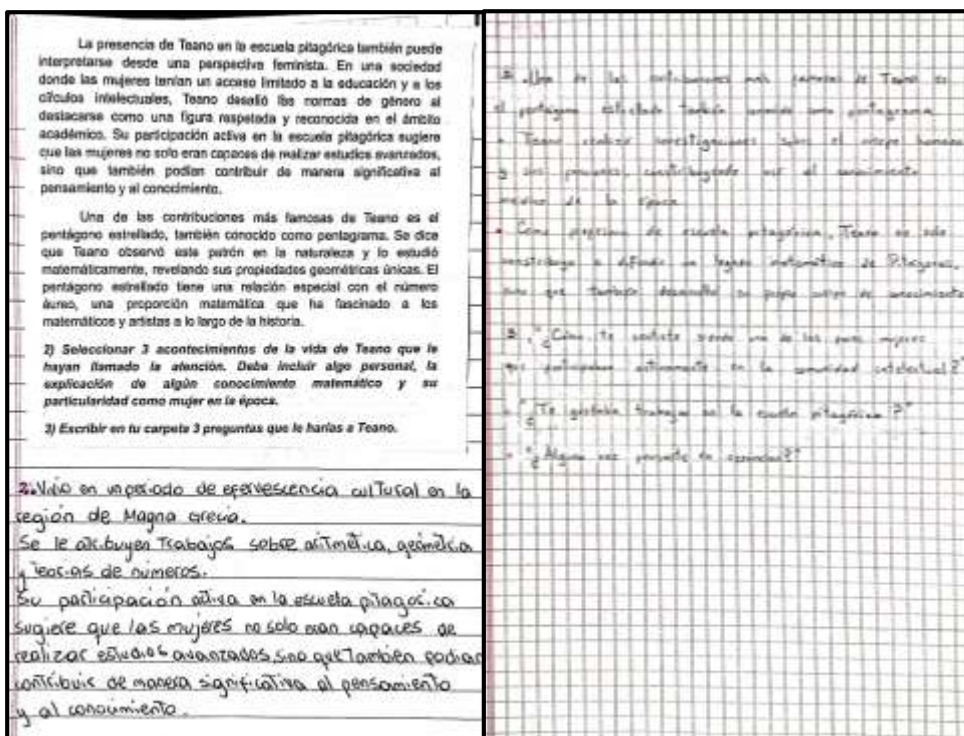 La presencia de Teano en la escuela pitagórica también puede
interpretarse desde una perspectiva feminista. En una sociedad
donde las mujeres tenían un acceso limitado a la educación y a los
círculos intelectuales, Teano desafió las normas de género al
destacarse como una figura respetada y reconocida en el ámbito
académico. Su participación activa en la escuela pitagórica sugiere
que las mujeres no solo eran capaces de realizar estudios avanzados,
sino que también podían contribuir de manera significativa al
pensamiento y al conocimiento.
Una de las contribuciones más famosas de Teano es el
pentágono estrellado, también conocido como pentagrama. Se dice
que Teano observó este patrón en la naturaleza y lo estudió
matemáticamente, revelando sus propiedades geométricas únicas. El
pentágono estrellado tiene una relación especial con el número
áureo, una proporción matemática que ha fascinado a los
matemáticos y artistas a lo largo de la historia.
2) Seleccionar 3 acontecimientos de la vida de Teano que le
hayan llamado la atención. Debe incluir algo personal, la
explicación de algún conocimiento matemático y su
particularidad como mujer en la época.
3) Escribir en tu carpeta 3 preguntas que le harías a Teano.
2. Vivio en un periodo de efervescencia cultural en la
región de Magna Grecia.
Se le atribuyen Trabajos sobre aritmética, geometría
y teorías de números.
Su participación activa en la escuela pitagórica
sugiere que las mujeres no solo eran capaces de
realizar estudios avanzados, sino que también podían
contribuir de manera significativa al pensamiento
y al conocimiento.
Una de las contribuciones más famosas de Teano es
el pentágono estrellado también conocido como pentagrama
Teano realizó investigaciones sobre el cuerpo humano
y sus procesos, así al conocimiento
médico de la época
Como de escuela pitagórica, Teano no solo
legado matemático de Pitágoras,
sino que también desarrolló su propio de conocimiento
3. "¿Cómo te sentiste siendo una de las pocas mujeres
que participaban activamente en la comunidad intelectual?"
"¿Te gustaba trabajar en la escuela pitagórica?"
"¿Alguna vez pensaste en ?"